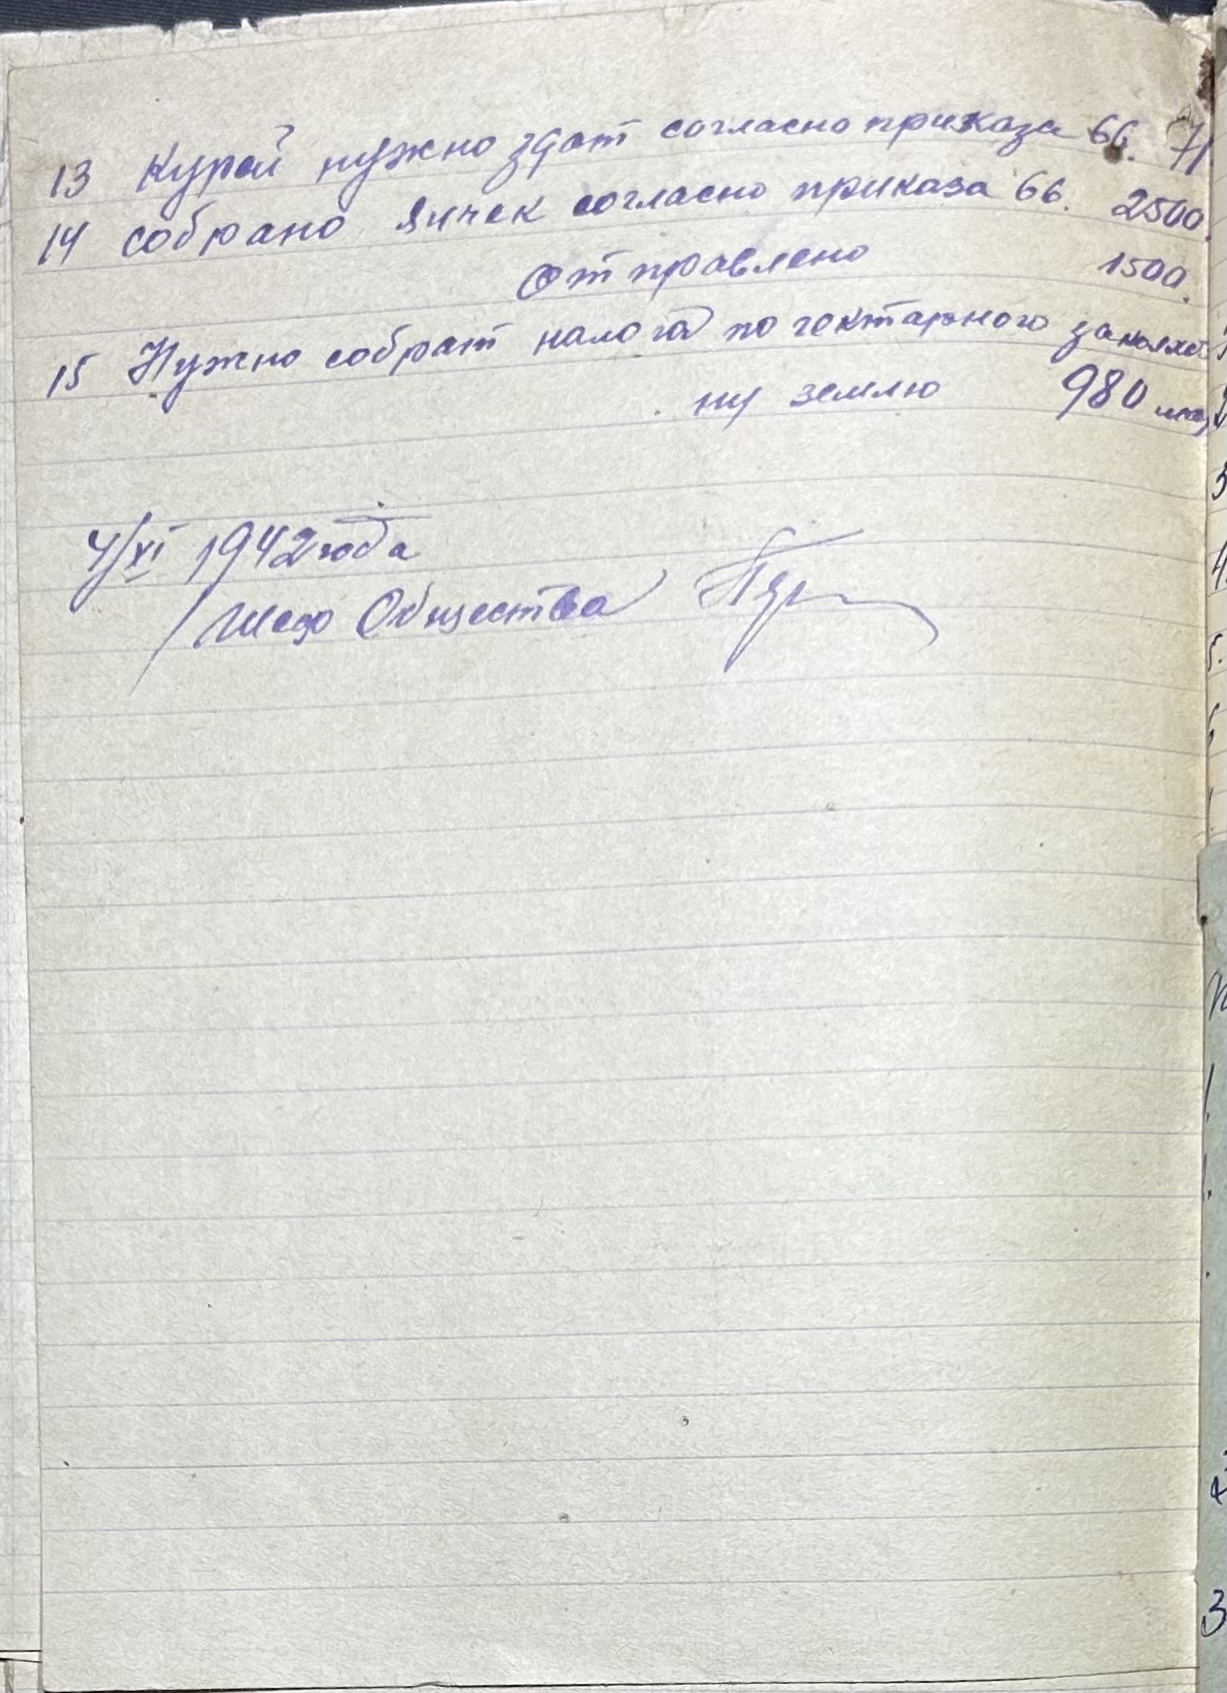 13 Курей нужно здат согласно приказа 66. 71
14 собрано яичек согласно приказа 66. 2500.
Отправлено 1500.
15 Нужно собрат налога по гектарного за
ну землю 980
4/XI 1942 года
Шеф Общества